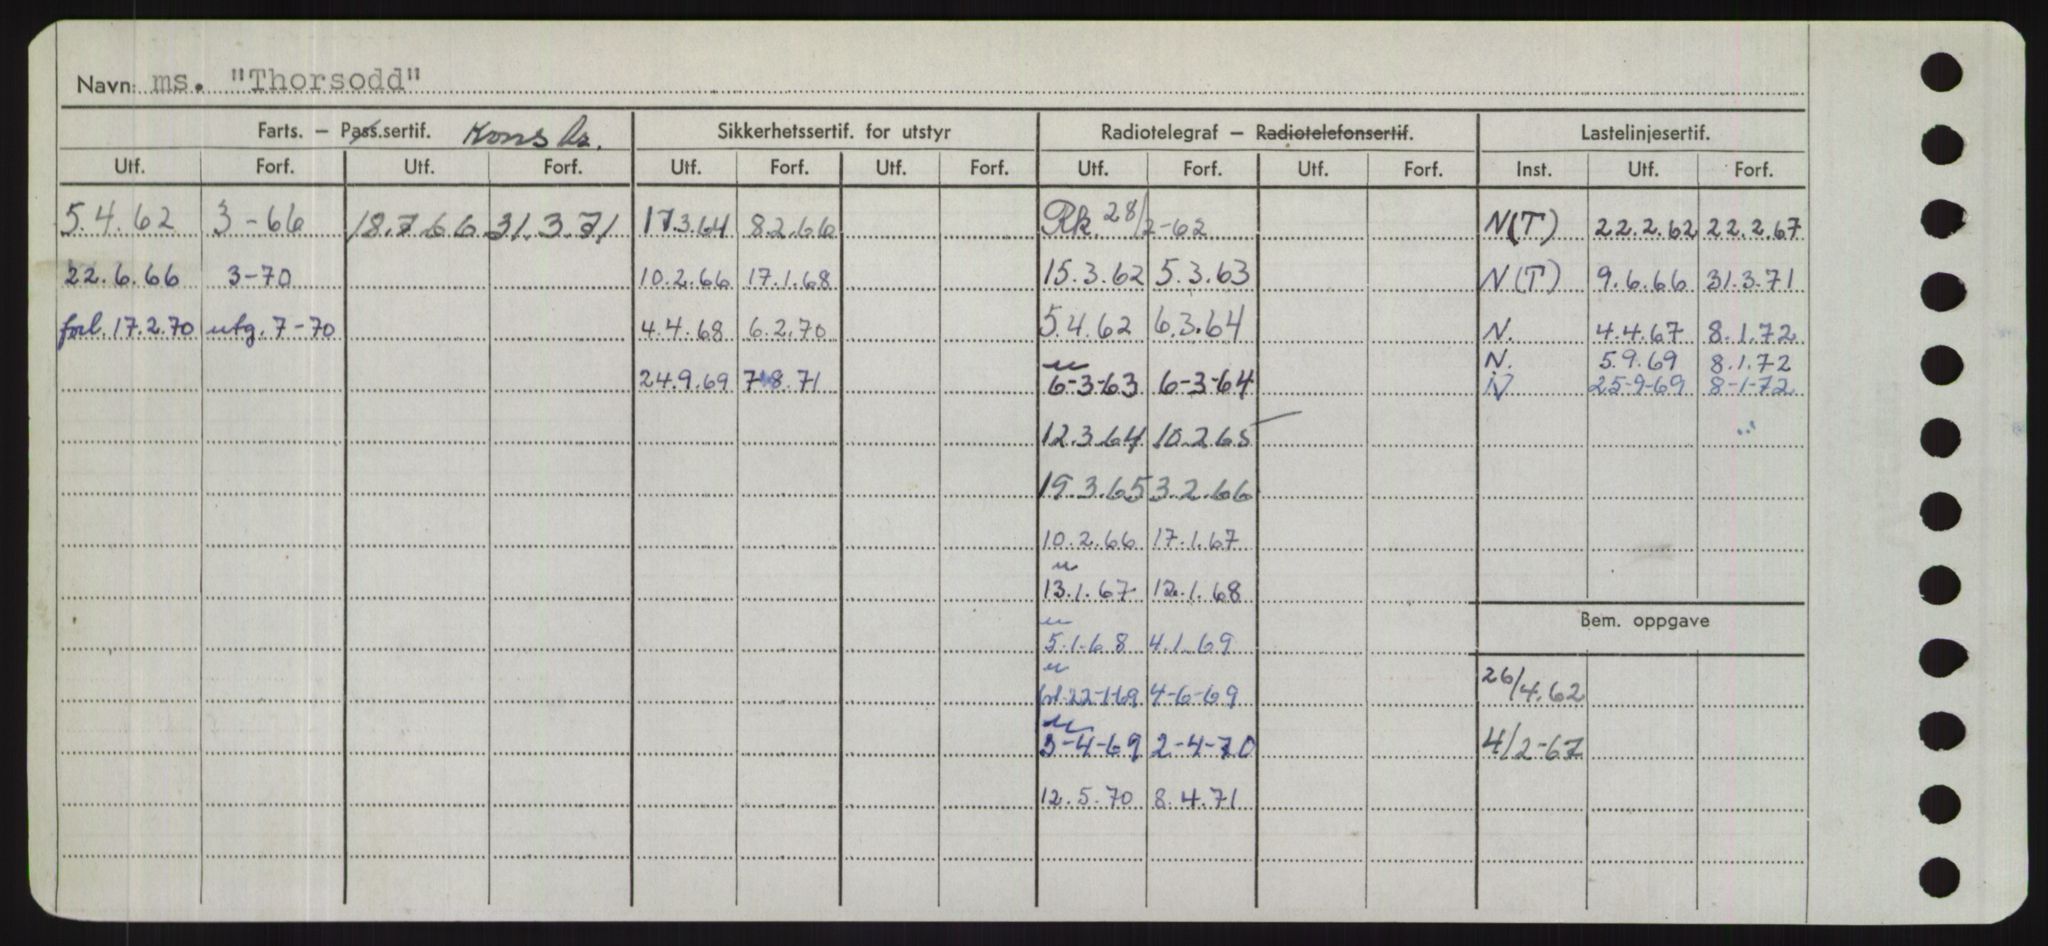 Navn: ms. "Thorsodd"
Farts. – Pass.sertif. Sikkerhetssertif. for utstyr Radiotelegraf – Radiotelefonsertif. Lastelinjesertif.
Utf. Forf. Utf. Forf. Utf. Forf. Utf. Forf. Utf. Forf. Utf. Forf. Inst. Utf. Forf.
5.4.62 3-66 18.7.66 31.3.71 17.3.64 8.2.66 Rk. 28/2-62 N(T) 22.2.62 22.2.67
22.6.66 3-70 10.2.66 17.1.68 15.3.62 5.3.63 N(T) 9.6.66 31.3.71
forl. 17.2.70 utg. 7-70 4.4.68 6.2.70 5.4.62 6.3.64 N. 4.4.67 8.1.72
N. 5.9.69 8.1.72
24.9.69 7.8.71 6-3-63 6-3-64 N 25-9-69 8-1-72
12.3.64 10.2.65
19.3.65 3.2.66
10.2.66 17.1.67
13.1.67 12.1.68
Bem. oppgave
5.1.68 4.1.69
22-1-69 4-6-69 26/4.62
3-4-69 2-4-70 4/2-67
12.5.70 8.4.71